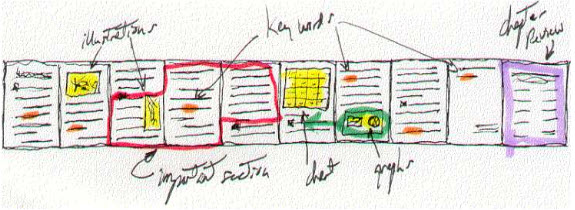 illustrations
key words
chapter
Review
important section
chart
graphs